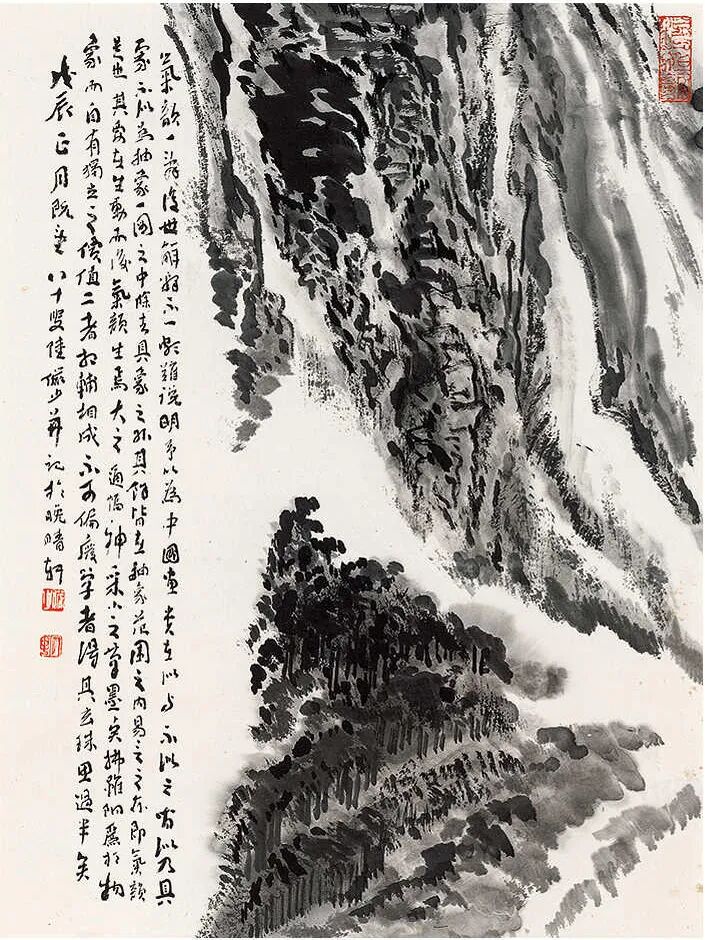 氣韻一辭後世解釋不一頗難說明予以為中國畫貴在似与不似之間似乃具
象不似為抽象一圖之中除去具象之外其餘皆在抽象范圍之内易言之亦即氣韻
是也其要在生動而後氣韻生焉大之通幅神采小之筆墨點拂雖附麗於物
象而自有獨立之價值二者相輔相成不可偏廢學者得其玄珠思過半矣
戊辰正月既望八十叟陸儼少并記於晚晴軒